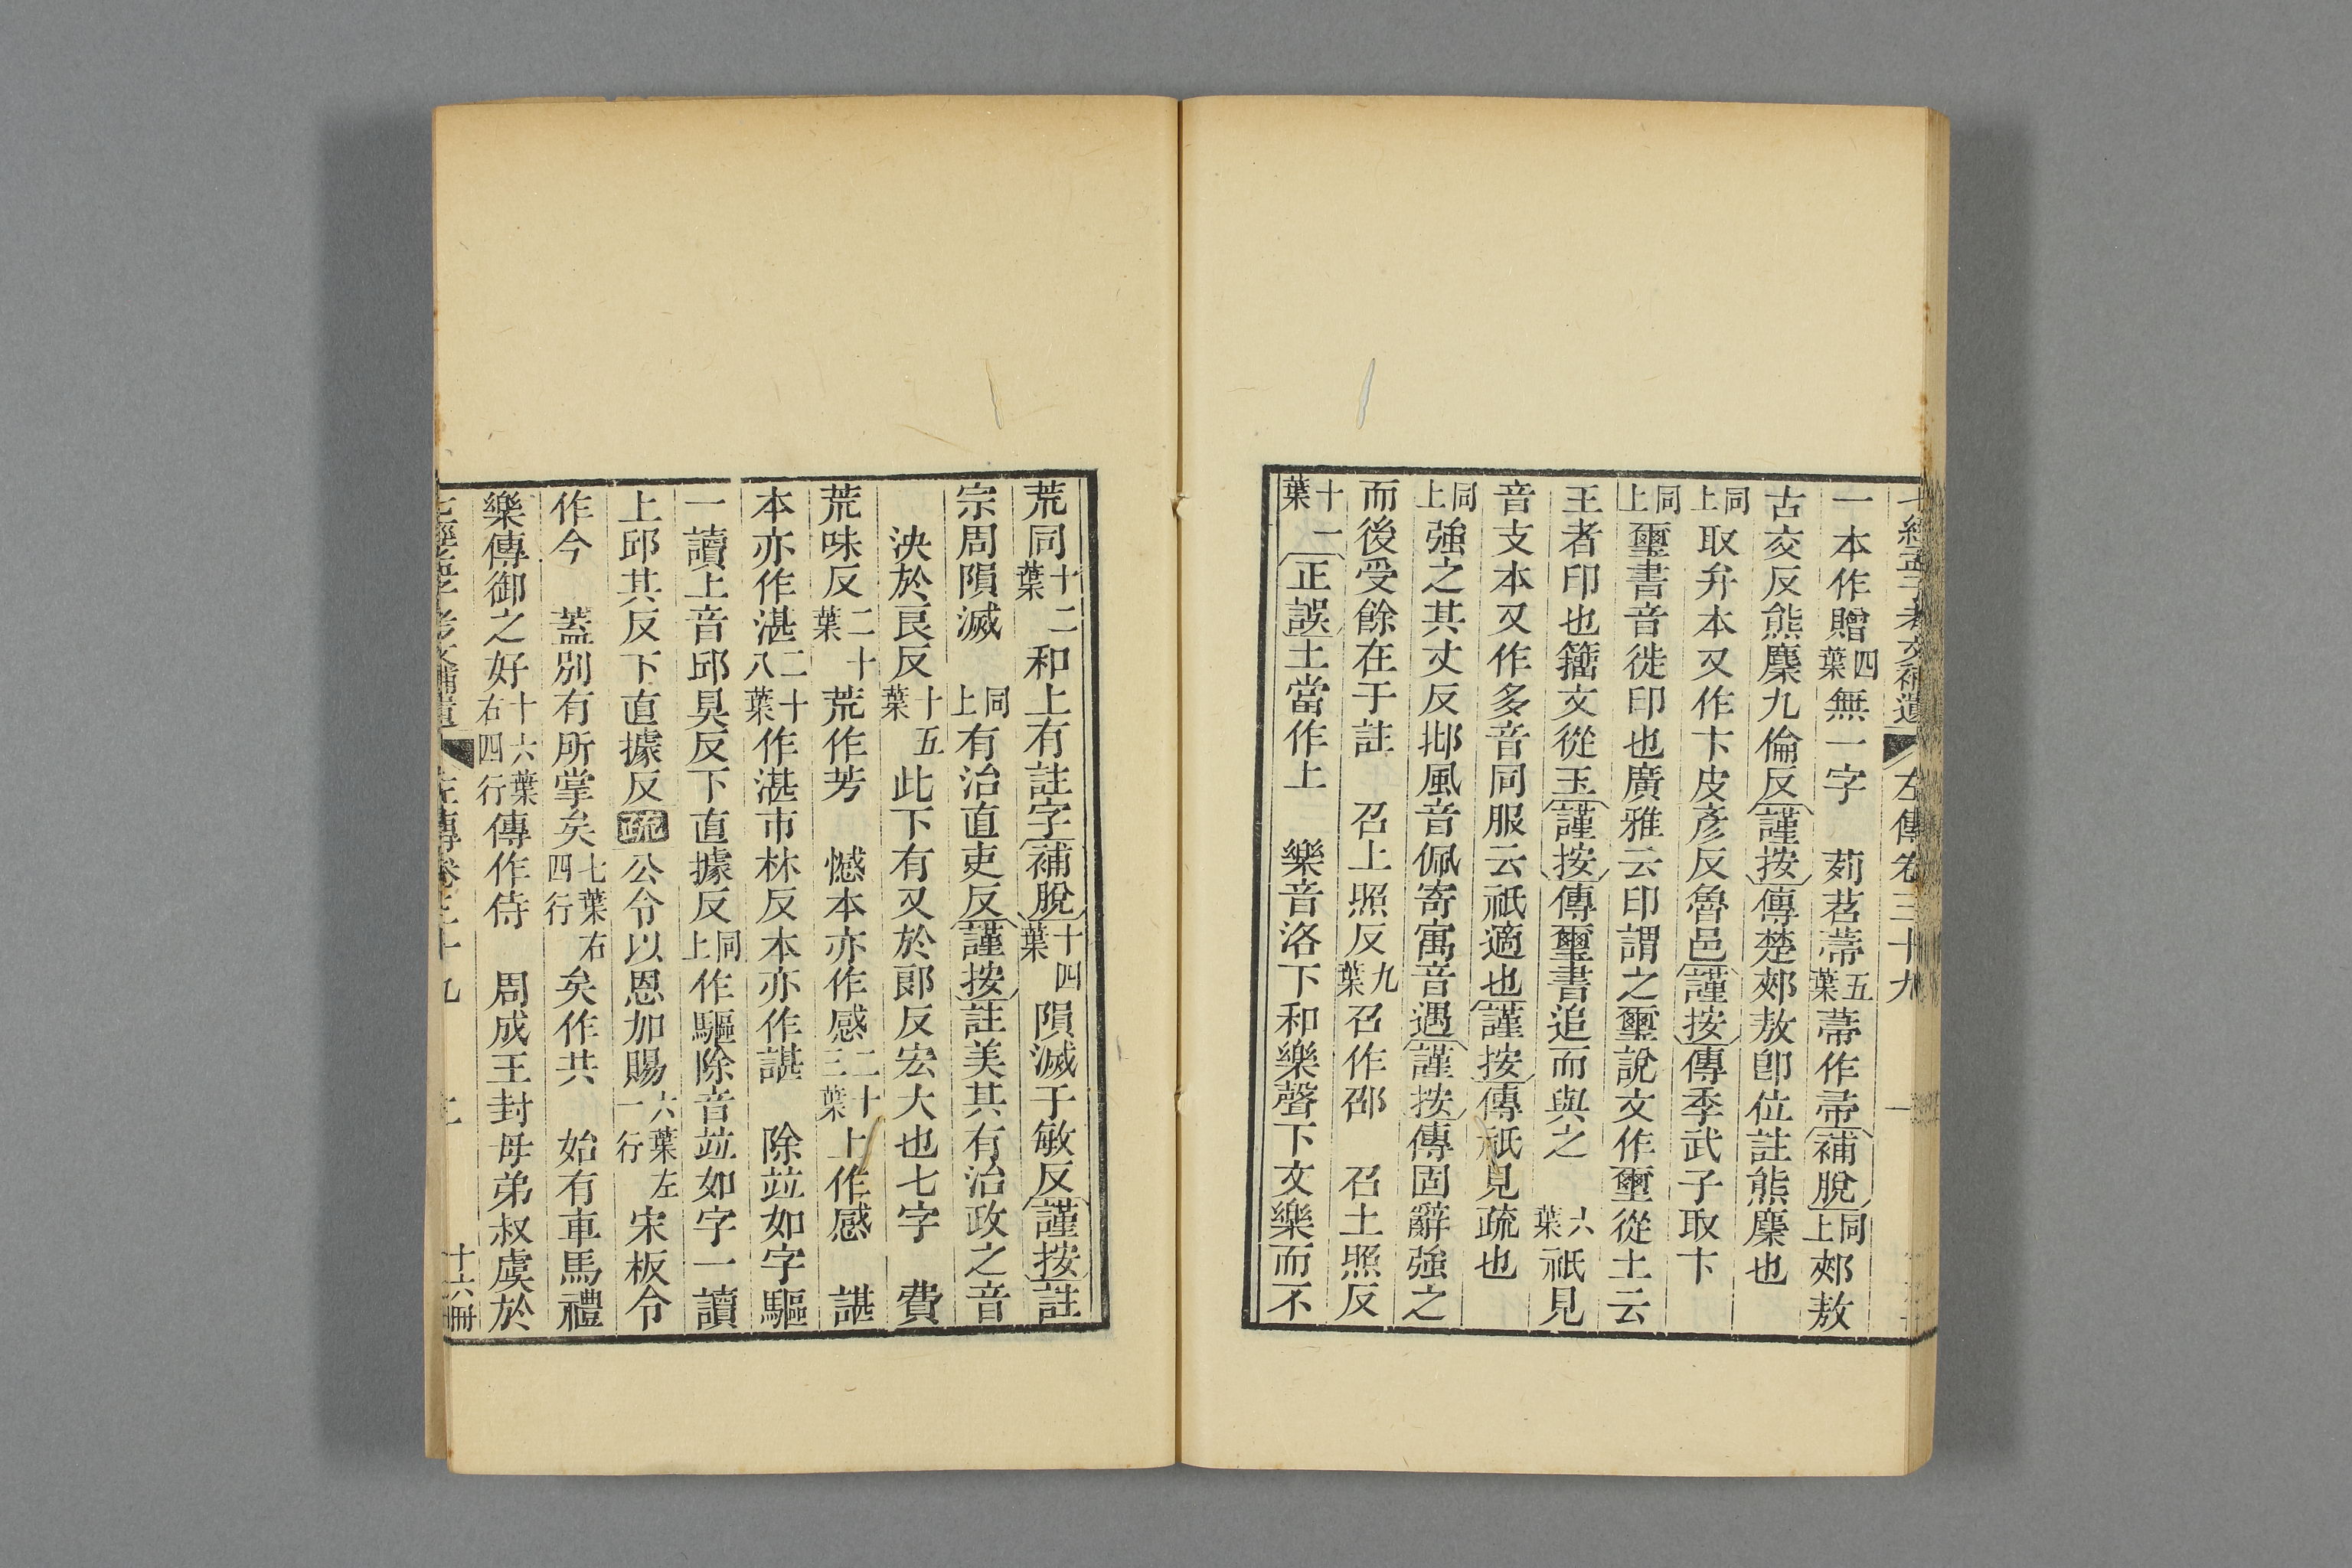 七經孟子考文補遺 左傳卷三十九
一本作贈四葉無一字 茢苕蒂五葉蒂作帚補脫同上郟敖
古夾反熊麇九倫反謹按傳楚郟敖卽位註熊麇也
同上取弁本又作卞皮彥反魯邑謹按傳季武子取卞
同上璽書音徙印也廣雅云印謂之璽說文作璽從土云
王者印也籀文從玉謹按傳璽書追而與之 六葉祇見
音支本又作多音同服云祇適也謹按傳祇見疏也
同上強之其丈反邶風音佩寄寓音遇謹按傳固辭強之
而後受餘在于註 召上照反九葉召作邵 召土照反
十一葉正誤土當作上 樂音洛下和樂聲下文樂而不
荒同十二葉和上有註字補脫十四葉隕滅于敏反謹按註
宗周隕滅 同上有治直吏反謹按註美其有治政之音
泱於良反十五葉此下有又於郞反宏大也七字 費
荒味反二十葉荒作芳 憾本亦作感二十三葉上作感 諶
本亦作湛二十八葉作湛市林反本亦作諶 除竝如字驅
一讀上音邱具反下直據反同上作驅除音竝如字一讀
上邱其反下直據反疏公令以恩加賜六葉左一行宋板令
作今 蓋別有所掌矣七葉右四行矣作共 始有車馬禮
樂傳御之好十六葉右四行傳作侍 周成王封母弟叔虞於
七經孟子考文補遺 左傳卷三十九 十六冊